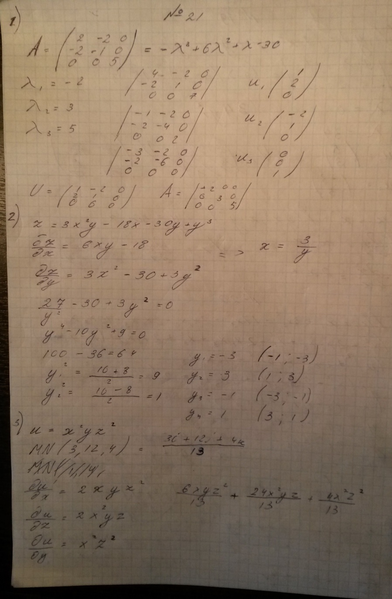 №21
1)
A = (2 -2 0; -2 -1 0; 0 0 5) = -λ³+6λ²+λ-30
λ₁ = -2 (4 -2 0; -2 1 0; 0 0 7) u₁ (1; 2; 0)
λ₂ = 3 (-1 -2 0; -2 -4 0; 0 0 2) u₂ (-2; 1; 0)
λ₃ = 5 (-3 -2 0; -2 -6 0; 0 0 0) u₃ (0; 0; 1)
2) z = 3x²y - 18x - 30y + y³
∂z/∂x = 6xy - 18 => x = 3/y
∂z/∂y = 3x² - 30 + 3y²
27/y² - 30 + 3y² = 0
y⁴ - 10y² + 9 = 0
100 - 36 = 64 y₁ = -3 (-1; -3)
y² = (10+8)/2 = 9 y₂ = 3 (1; 3)
y² = (10-8)/2 = 1 y₃ = -1 (-3; -1)
y₄ = 1 (3; 1)
3) u = x²yz²
MN (3, 12, 4) = (3i + 12j + 4k)/13
∂u/∂x = 2xyz² 6xyz²/13 + 24x²yz/13 + 4x²z²/13
∂u/∂z = 2x²yz
∂u/∂y = x²z²